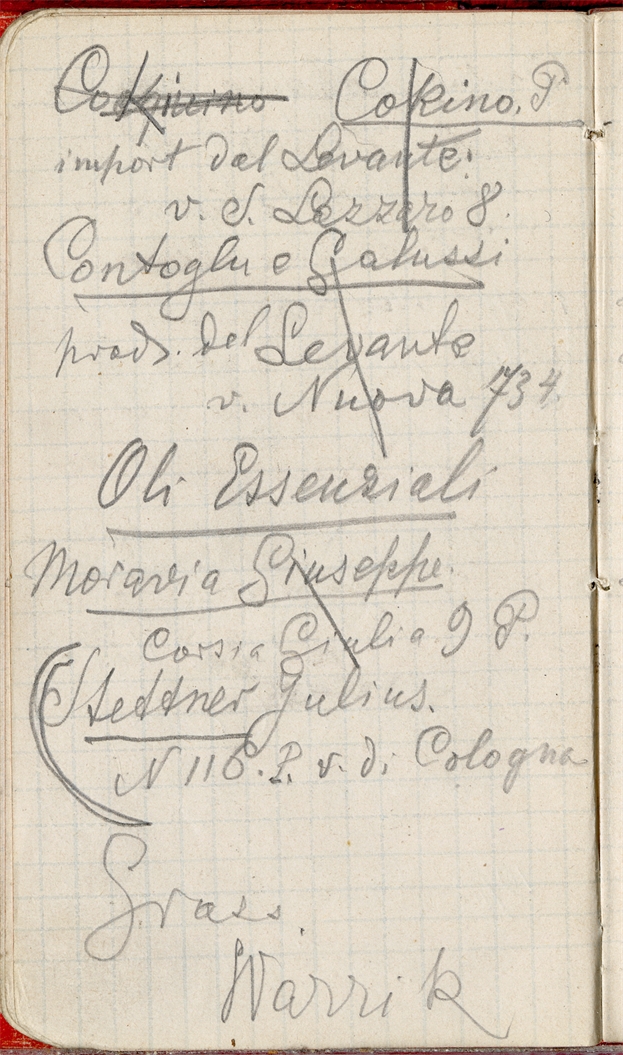 Cokino. P
import dal Levante.
v. S. Lazzaro 8.
Contoglu e Galussi
prod. del Levante
v. Nuova 734.
Oli Essenziali
Moravia Giuseppe.
Corsia Giulia 9 P.
Stettner Julius.
N 116. P. v. di Cologna
Grass.
Warrik